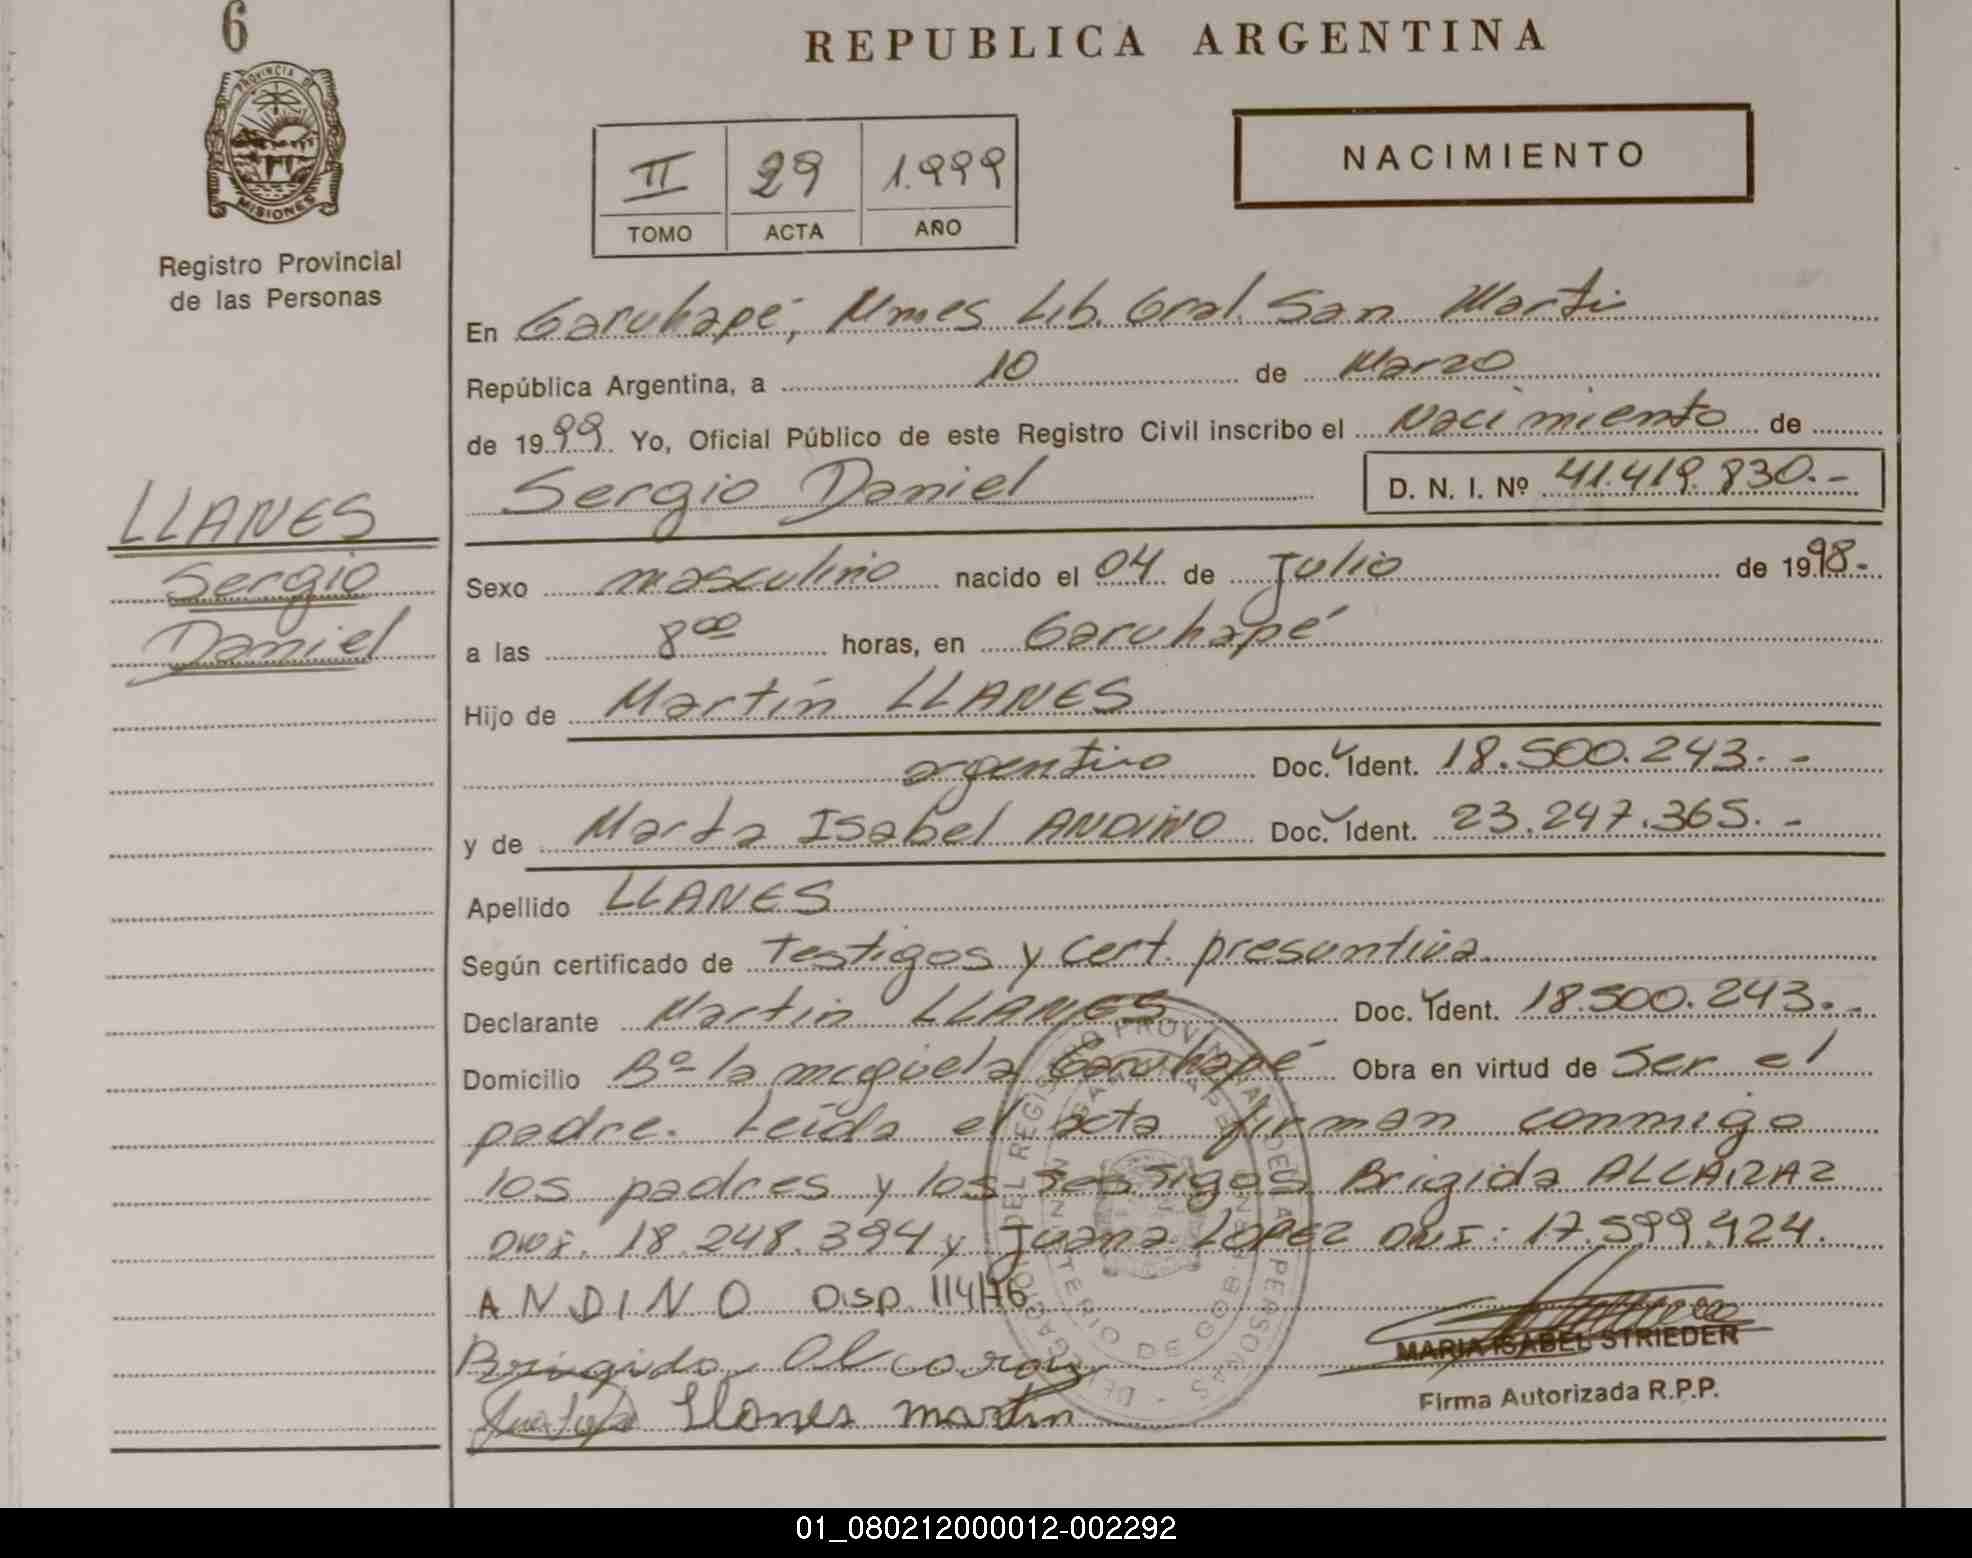 6
PROVINCIA DE
MISIONES
Registro Provincial
de las Personas
REPUBLICA ARGENTINA
II 29 1.999
TOMO ACTA AÑO
NACIMIENTO
En Garuhapé, Mnes Lib. Gral. San Martí
República Argentina, a 10 de Marzo
de 1999. Yo, Oficial Público de este Registro Civil inscribo el Nacimiento de
Sergio Daniel D. N. I. Nº 41.419.830.-
LLANES
Sergio
Daniel
Sexo masculino nacido el 04 de Julio de 1998.-
a las 8⁰⁰ horas, en Garuhapé
Hijo de Martín LLANES
argentino Doc. Ident. 18.500.243.-
y de Marta Isabel ANDINO Doc. Ident. 23.247.365.-
Apellido LLANES
Según certificado de Testigos y Cert. presuntiva.
Declarante Martin LLANES Doc. Ident. 18.500.243.-
Domicilio Bº la Garuhapé Obra en virtud de Ser el
padre. Leída el acta firman conmigo
los padres y los testigos Brigida ALCARAZ
DNI. 18.248.394 y Juana LOPEZ DNI: 17.599.424.
ANDINO Disp. 114/76
Brigida Alcaraz
Llanes martin
MARIA ISABEL STRIEDER
Firma Autorizada R.P.P.
01_080212000012-002292